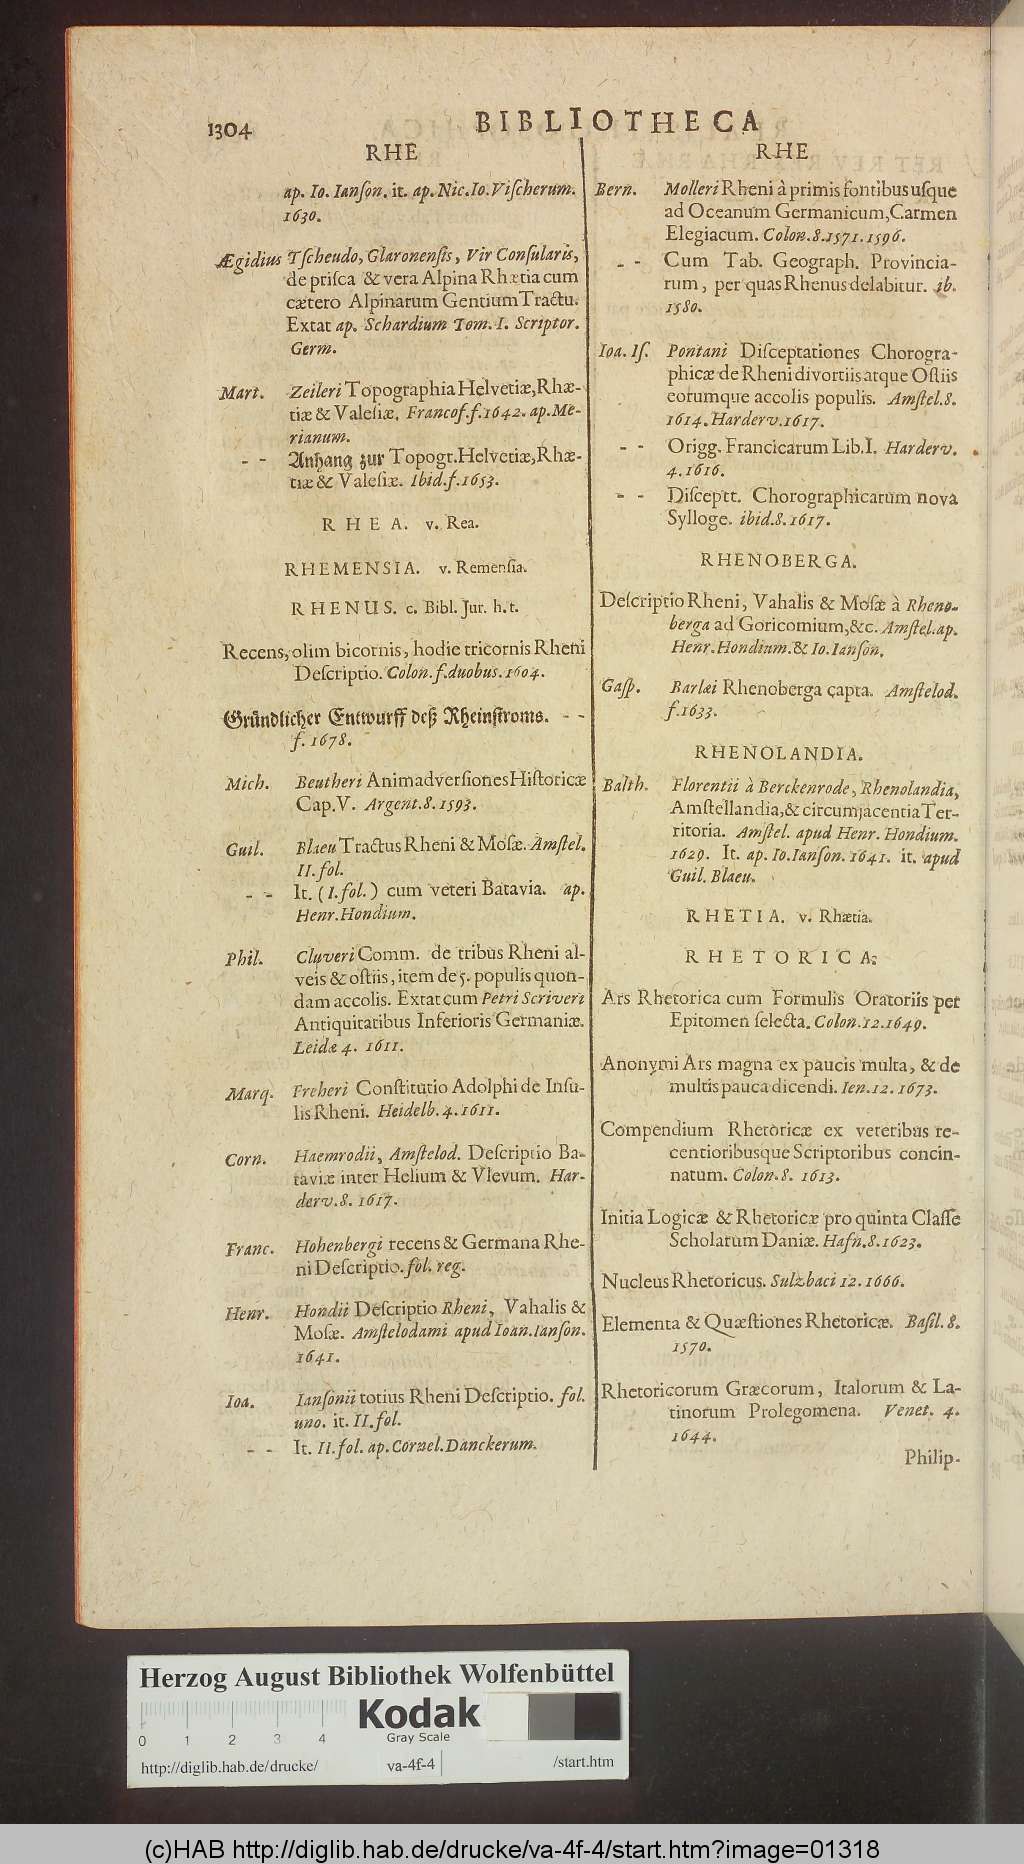 1304
BIBLIOTHECA
RHE
ap. Io. Ianſon. it. ap. Nic. Io. Viſcherum.
1630.
Ægidius Tſcheudo, Glaronenſis, Vir Conſularis,
de priſca & vera Alpina Rhætia cum
cætero Alpinarum Gentium Tractu.
Extat ap. Schardium Tom. I. Scriptor.
Germ.
Mart. Zeileri Topographia Helvetiæ, Rhæ-
tiæ & Valeſiæ. Francof. f. 1642. ap. Me-
rianum.
- - Anhang zur Topogr. Helvetiæ, Rhæ-
tiæ & Valeſiæ. Ibid. f. 1653.
RHEA. v. Rea.
RHEMENSIA. v. Remenſia.
RHENUS. c. Bibl. Jur. h. t.
Recens, olim bicornis, hodie tricornis Rheni
Deſcriptio. Colon. f. duobus. 1604.
Gründlicher Entwurff deß Rheinſtroms. - -
f. 1678.
Mich. Beutheri Animadverſiones Hiſtoricæ
Cap. V. Argent. 8. 1593.
Guil. Blaeu Tractus Rheni & Moſæ. Amſtel.
II. fol.
- - It. (I. fol.) cum veteri Batavia. ap.
Henr. Hondium.
Phil. Cluveri Comm. de tribus Rheni al-
veis & oſtiis, item de 5. populis quon-
dam accolis. Extat cum Petri Scriveri
Antiquitatibus Inferioris Germaniæ.
Leidæ 4. 1611.
Marq. Freheri Conſtitutio Adolphi de Inſu-
lis Rheni. Heidelb. 4. 1611.
Corn. Haemrodii, Amſtelod. Deſcriptio Ba-
taviæ inter Helium & Vlevum. Har-
derv. 8. 1617.
Franc. Hohenbergi recens & Germana Rhe-
ni Deſcriptio. fol. reg.
Henr. Hondii Deſcriptio Rheni, Vahalis &
Moſæ. Amſtelodami apud Ioan. Ianſon.
1641.
Ioa. Ianſonii totius Rheni Deſcriptio. fol.
uno. it. II. fol.
- - It. II. fol. ap. Cornel. Danckerum.
RHE
Bern. Molleri Rheni à primis fontibus uſque
ad Oceanum Germanicum, Carmen
Elegiacum. Colon. 8. 1571. 1596.
- - Cum Tab. Geograph. Provincia-
rum, per quas Rhenus delabitur. ib.
1580.
Ioa. Iſ. Pontani Diſceptationes Chorogra-
phicæ de Rheni divortiis atque Oſtiis
eorumque accolis populis. Amſtel. 8.
1614. Harderv. 1617.
- - Origg. Francicarum Lib. I. Harderv.
4. 1616.
- - Diſceptt. Chorographicarum nova
Sylloge. ibid. 8. 1617.
RHENOBERGA.
Deſcriptio Rheni, Vahalis & Moſæ à Rheno-
berga ad Goricomium, &c. Amſtel. ap.
Henr. Hondium. & Io. Ianſon.
Gaſp. Barlæi Rhenoberga capta. Amſtelod.
f. 1633.
RHENOLANDIA.
Balth. Florentii à Berckenrode, Rhenolandia,
Amſtellandia, & circumjacentia Ter-
ritoria. Amſtel. apud Henr. Hondium.
1629. It. ap. Io. Ianſon. 1641. it. apud
Guil. Blaeu.
RHETIA. v. Rhætia.
RHETORICA.
Ars Rhetorica cum Formulis Oratoriis per
Epitomen ſelecta. Colon. 12. 1649.
Anonymi Ars magna ex paucis multa, & de
multis pauca dicendi. Ien. 12. 1673.
Compendium Rhetoricæ ex veteribus re-
centioribusque Scriptoribus concin-
natum. Colon. 8. 1613.
Initia Logicæ & Rhetoricæ pro quinta Claſſe
Scholarum Daniæ. Hafn. 8. 1623.
Nucleus Rhetoricus. Sulzbaci 12. 1666.
Elementa & Quæſtiones Rhetoricæ. Baſil. 8.
1570.
Rhetoricorum Græcorum, Italorum & La-
tinorum Prolegomena. Venet. 4.
1644.
Philip-
Herzog August Bibliothek Wolfenbüttel
Kodak
Gray Scale
0 1 2 3 4
http://diglib.hab.de/drucke/ va-4f-4 /start.htm
(c)HAB http://diglib.hab.de/drucke/va-4f-4/start.htm?image=01318